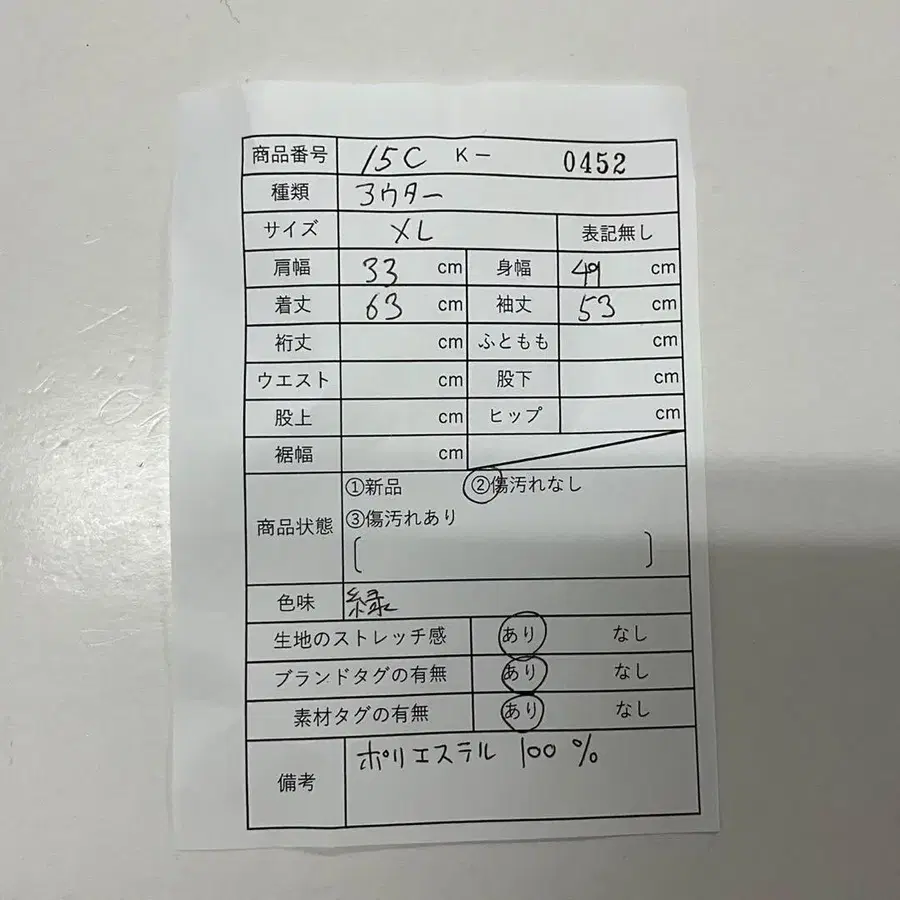 商品番号 15C K- 0452
種類 アウター
サイズ XL 表記無し
肩幅 33 cm 身幅 49 cm
着丈 63 cm 袖丈 53 cm
裄丈 cm ふともも cm
ウエスト cm 股下 cm
股上 cm ヒップ cm
裾幅 cm
商品状態 ①新品 ②傷汚れなし
③傷汚れあり
[ ]
色味 緑
生地のストレッチ感 あり なし
ブランドタグの有無 あり なし
素材タグの有無 あり なし
備考 ポリエステル 100 %